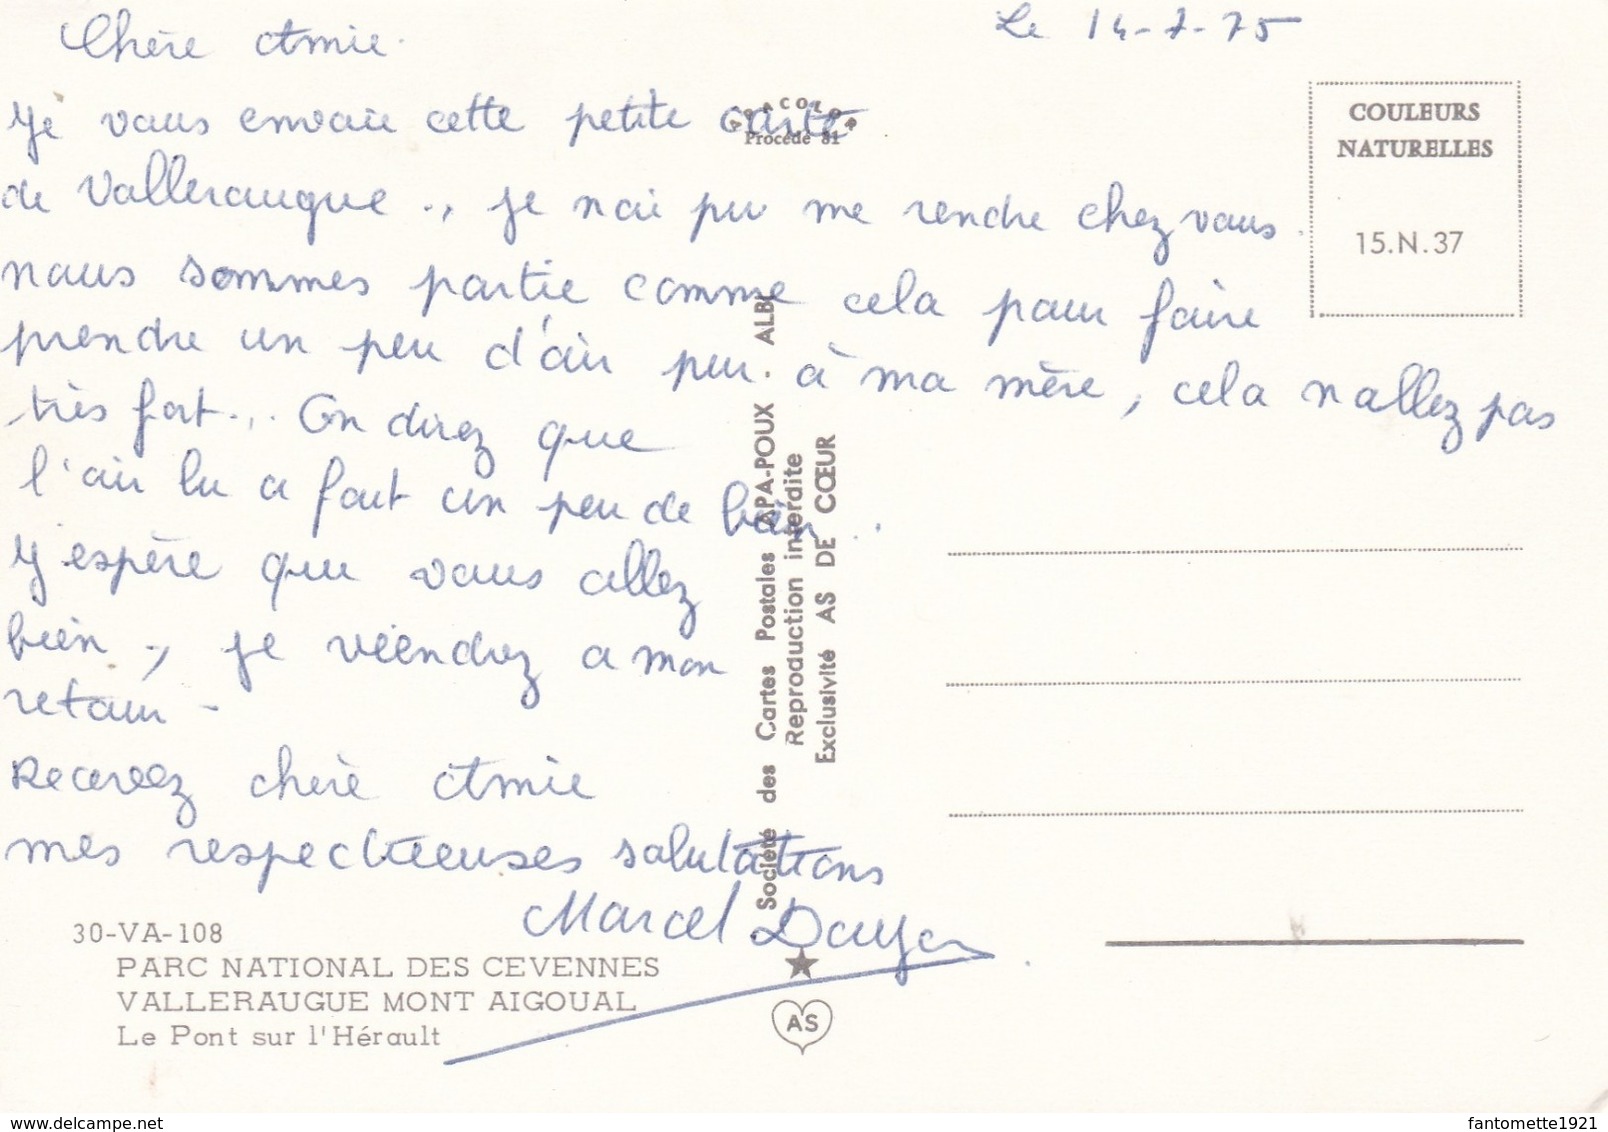 Le 14-7-75
Chère Amie.
Je vous envoie cette petite carte
de Valleraugue., je nai pu me rendre chez vous.
nous sommes partie comme cela pour faire
prendre un peu d'air peu à ma mère, cela n allez pas
très fort... On direz que
l'air lu a fait un peu de bien..
J'espère que vous allez
bien., je viendrez a mon
retour -
Recevez chère Amie
mes respectueuses salutations
Marcel
APACOLOR
Procédé 81
COULEURS
NATURELLES
15.N.37
Société des Cartes Postales APA-POUX ALBI
Reproduction interdite
Exclusivité AS DE CŒUR
30-VA-108
PARC NATIONAL DES CEVENNES
VALLERAUGUE MONT AIGOUAL
Le Pont sur l'Hérault
AS
fantomette1921